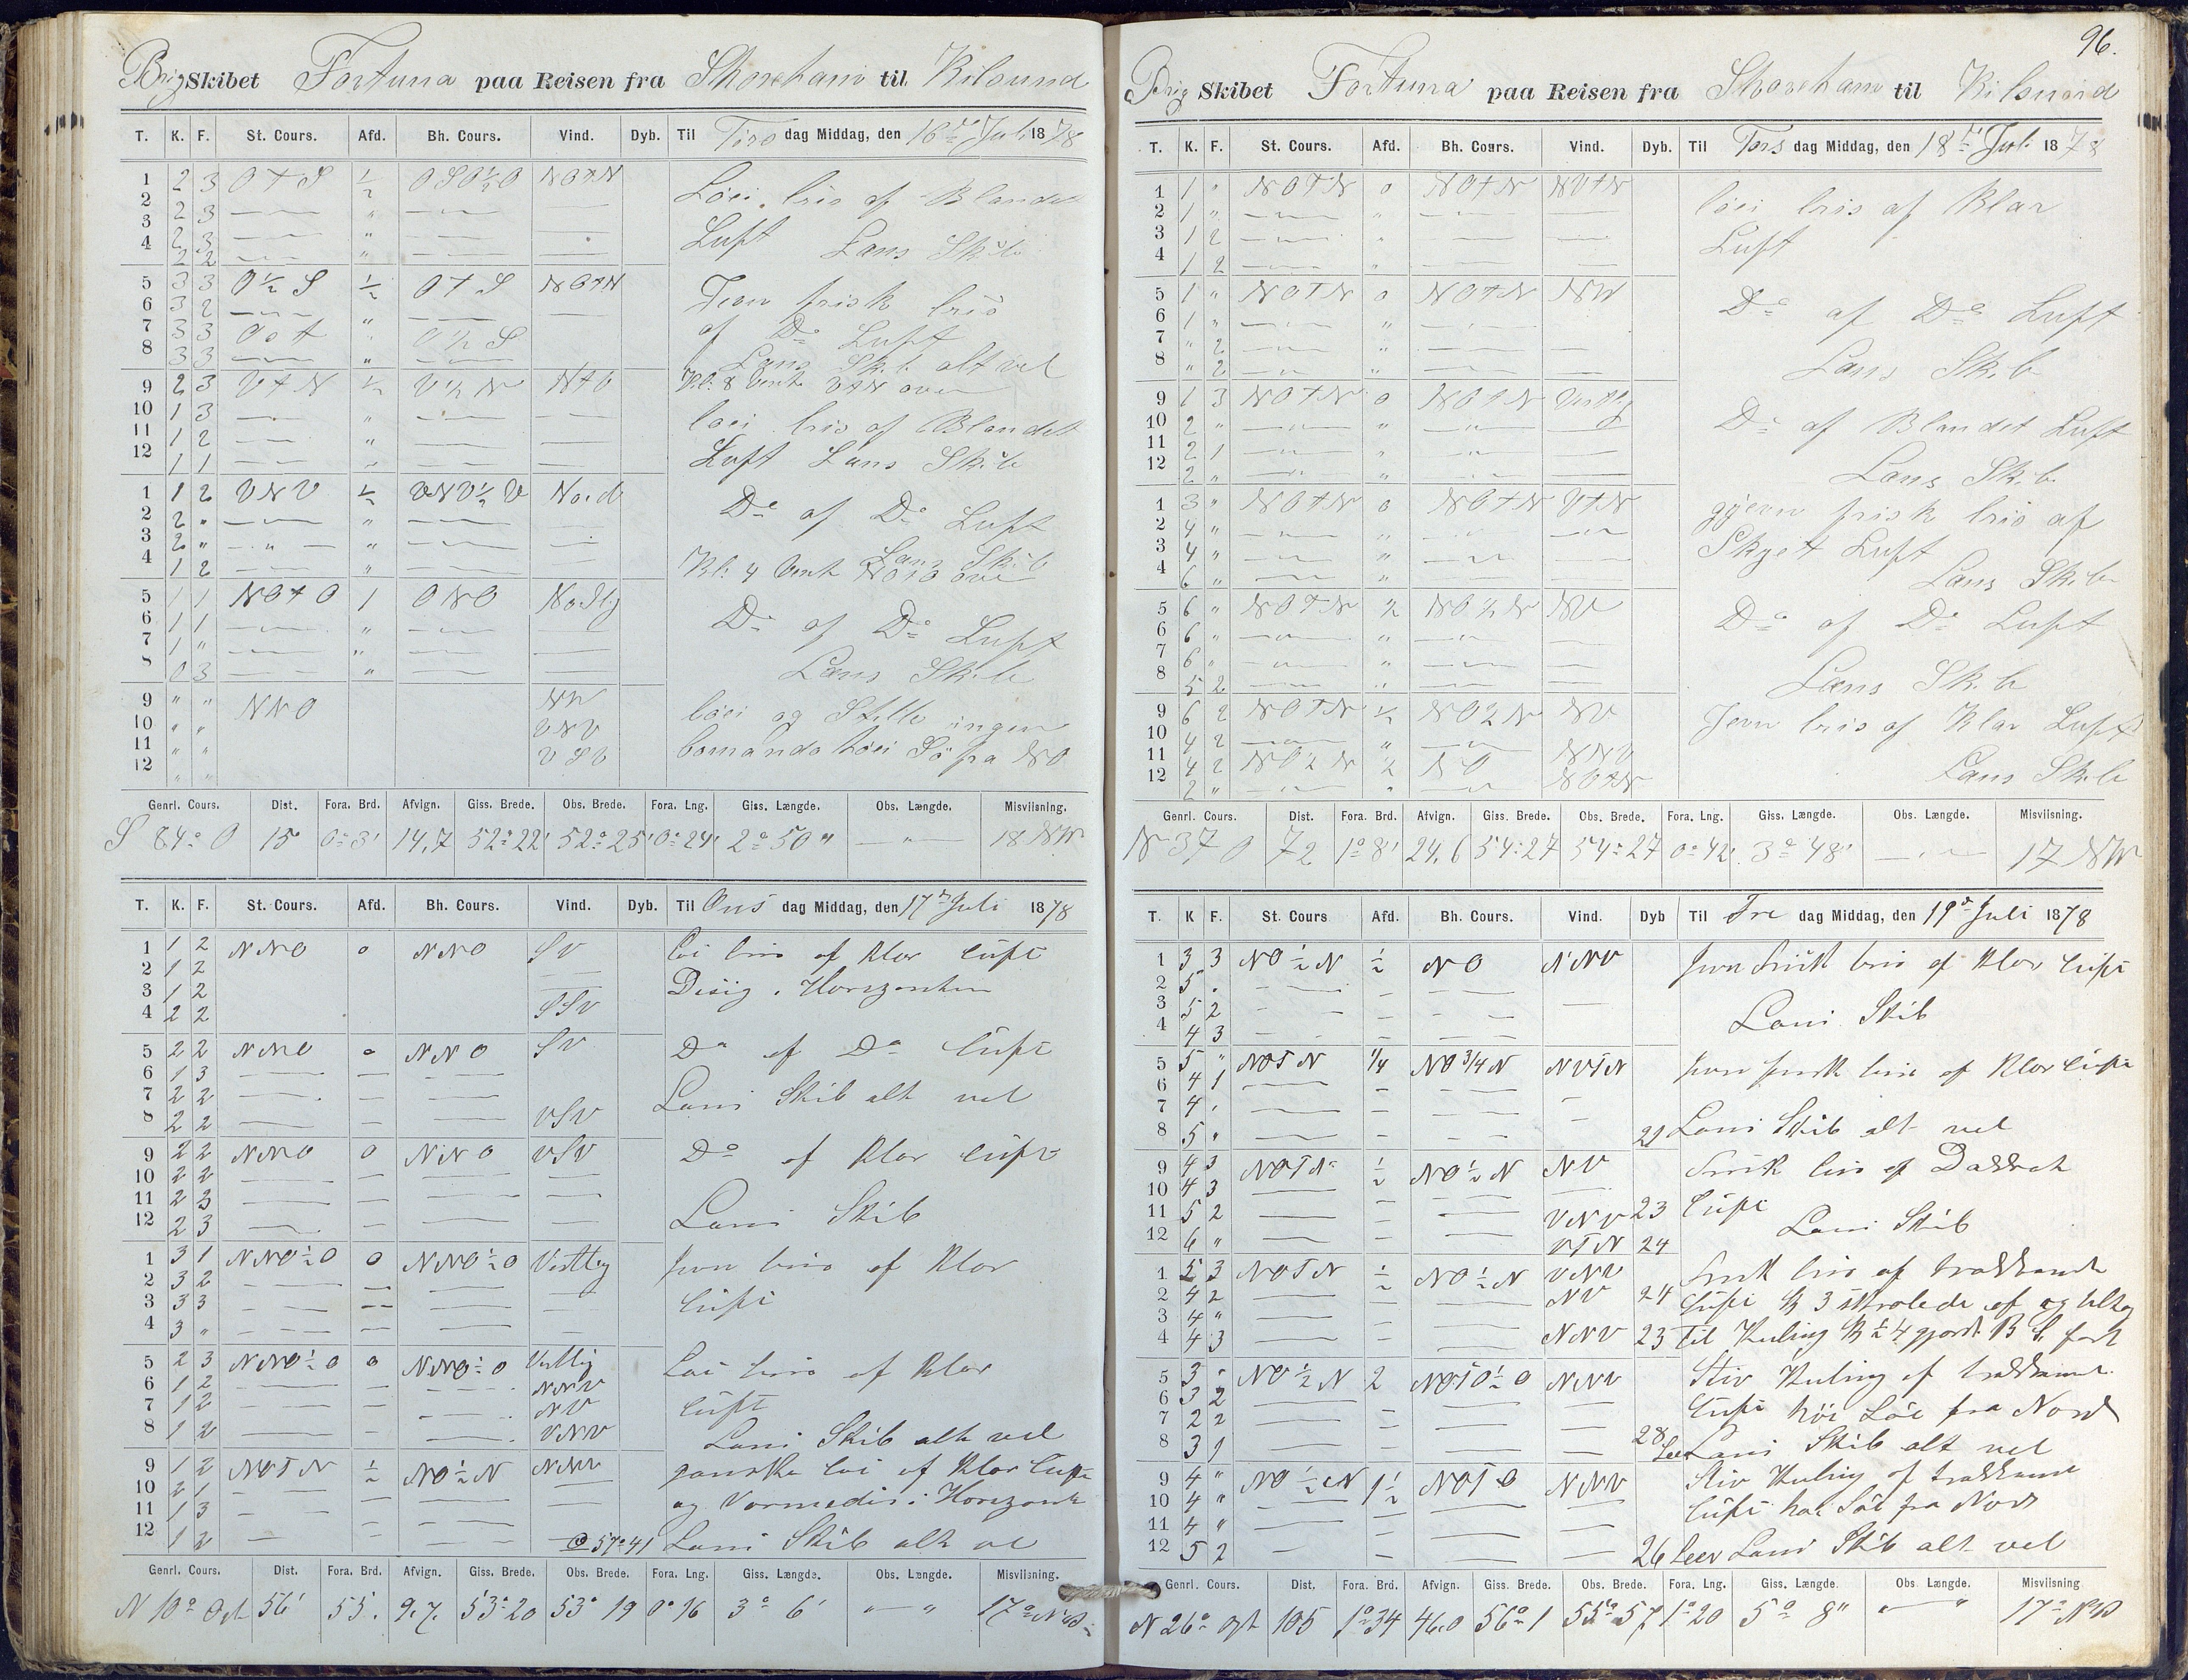 Brig Skibet Fortuna paa Reisen fra Shoreham til Kilsund
T. K. F. St. Cours. Afd. Bh. Cours. Vind. Dyb. Til Tirs dag Middag, den 16de Juli 1878
1 2 3 O t S ½ OSO½O NOtN Löei bris af Blandet
2 2 3 " Luft Lens Skib
3 2 3 "
4 2 2 "
5 3 3 O½S ½ O t S NOtN Jevn frisk bris
6 3 2 " af Do Luft
7 3 3 Ost " O½S Lens Skib alt vel
8 3 3 "
9 2 3 VtN ½ V½N Kl: 8 Vent VtN over
10 1 3 " löei bris af Blandet
11 1 2 " Luft Lens Skib
12 1 1 "
1 1 2 VNV ½ VNV½V Nord Do af Do Luft
2 2 " "
3 2 " " Lens Skib
4 1 2 " Kl: 4 Vent over
5 1 1 NOtO 1 ONO Nordlig Do af Do Luft
6 1 1 "
7 1 " " Lens Skib
8 0 3 "
9 " " NNO NV löei og Stille ingen
10 " " VNV
11 " " VSV Sö fra NO
12 " "
Genrl. Cours. Dist. Fora. Brd. Afvign. Giss. Brede. Obs. Brede. Fora. Lng. Giss. Længde. Obs. Længde. Misviisning.
S 84° O 15 0° 3' 14,7 52° 22' 52° 25' 0° 24' 2° 50 " " 18 NW
T. K. F. St. Cours. Afd. Bh. Cours. Vind. Dyb. Til Ons dag Middag, den 17de Juli 1878
1 1 2 NNO 0 NNO SV Löi bris af Klar Luft
2 1 2 Disig i Horizonten
3 1 2
4 2 2 SSV
5 2 2 NNO 0 NNO SV Do af Do Luft
6 1 3
7 2 2 Lens Skib alt vel
8 2 2 VSV
9 2 2 NNO 0 NNO VSV Do af Klar Luft
10 2 2
11 2 3 Lens Skib
12 2 3
1 3 1 NNO½O 0 NNO½O Vestlig Jevn bris af Klar
2 3 2 Luft
3 3 3
4 3 "
5 2 3 NNO½O 0 NNO½O Vestlig Löi bris af Klar
6 1 2 NNV Luft
7 1 2 NV
8 1 2 VNV Lens Skib alt vel
9 1 2 NOTN ½ NO½N NNV ganske löi af Klar Luft
10 2 1 og i Horizont
11 1 3
12 1 2 57° 41 Lens Skib alt vel
Genrl. Cours. Dist. Fora. Brd. Afvign. Giss. Brede. Obs. Brede. Fora. Lng. Giss. Længde. Obs. Længde. Misviisning.
N 10° Ost 56' 55. 9.7. 53° 20 53° 19 0° 16 3° 6' " " 17°
96.
Brig Skibet Fortuna paa Reisen fra Shoreham til Kilsund
T. K. F. St. Cours. Afd. Bh. Cours. Vind. Dyb. Til Tors dag Middag, den 18de Juli 1878
1 1 " NOTN 0 NOtN NVtN löei bris af Klar
2 1 " " Luft
3 1 2 "
4 1 2 "
5 1 " NOTN 0 NOtN NW Do af Do Luft
6 1 " "
7 " 2 " Lens Skib
8 " 2 "
9 1 3 NOtN 0 NOtN Vestlig Do af Blandet Luft
10 2 " "
11 2 1 " Lens Skib
12 2 " "
1 3 " NOtN 0 NOtN VtN gjevn frisk bris af
2 4 " " Skyet Luft
3 4 " "
4 6 " " Lens Skib
5 6 " NOTN ½ NO½N NV Do af Do Luft
6 6 " "
7 6 " " Lens Skib
8 5 2 "
9 6 2 NOTN ½ NO½N NV Jevn bris af Klar Luft
10 4 2 "
11 4 2 NO½N ½ NO NNV
12 2 " " NOtN Lens Skib
Genrl. Cours. Dist. Fora. Brd. Afvign. Giss. Brede. Obs. Brede. Fora. Lng. Giss. Længde. Obs. Længde. Misviisning.
N 37 O 72 1° 8' 24,6 54° 27 54° 27 0° 42' 3° 48' 17 NW
T. K F. St. Cours Afd. Bh. Cours. Vind. Dyb Til Fre dag Middag, den 19de Juli 1878
1 3 3 NO½N ½ NO NNV Jevn Frisk bris af Klar Luft
2 5 "
3 5 2 Lens Skib
4 4 3
5 5 " NOTN ¼ NO¾N NVTN Jevn frisk bris af Klar Luft
6 4 1
7 4 "
8 5 " 21 Lens Skib alt vel
9 4 3 NOTN ½ NO½N NV Frisk bris af
10 4 3 Luft
11 5 2 VNV 23 Lens Skib
12 6 " VTN 24
1 5 3 NOTN ½ NO½N VNV Frisk bris af
2 4 2 NV 24 Luft
3 4 "
4 4 3 NNV 23 Til Kuling
5 3 " NO½N 2 NOTO½O NNV Stiv Kuling af
6 3 2 Luft
7 2 2 fra Nord
8 3 1 28 Leer Lens Skib alt vel
9 4 " NO½N 1½ NOTO NNV Stiv Kuling af
10 4 " Luft fra Nord
11 4 "
12 5 2 26 Leer Lens Skib alt vel
Genrl. Cours. Dist. Fora. Brd. Afvign. Giss. Brede. Obs. Brede. Fora. Lng. Giss. Længde. Obs Længde. Misviisning
N 26° Ost 105 1° 34 46.0 56° 1 55° 57 1° 20 5° 8" " " 17°